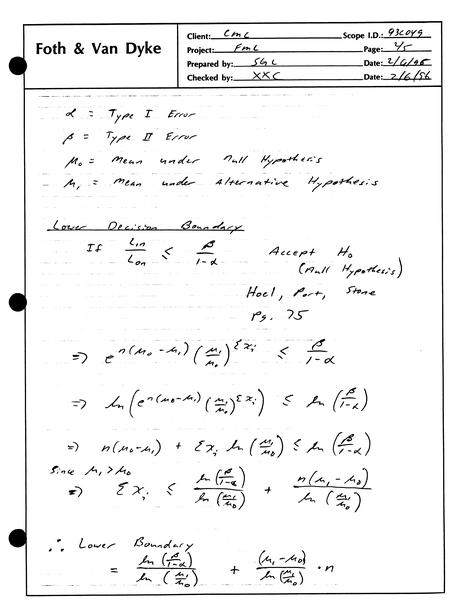 Foth & Van Dyke
Client: CMC Scope I.D.: 93C049
Project: FMC Page: 2/5
Prepared by: SGC Date: 2/6/96
Checked by: XXC Date: 2/6/96
α = Type I Error
β = Type II Error
μ₀ = Mean under Null Hypothesis
μ₁ = Mean under Alternative Hypothesis
Lower Decision Boundary
If L₁ₙ/L₀ₙ ≤ β/(1-α) Accept H₀
(Null Hypothesis)
Hoel, Port, Stone
Pg. 75
⇒ e^(n(μ₀-μ₁)) (μ₁/μ₀)^(Σxᵢ) ≤ β/(1-α)
⇒ ln(e^(n(μ₀-μ₁)) (μ₁/μ₀)^(Σxᵢ)) ≤ ln(β/(1-α))
⇒ n(μ₀-μ₁) + Σxᵢ ln(μ₁/μ₀) ≤ ln(β/(1-α))
Since μ₁>μ₀
⇒ Σxᵢ ≤ ln(β/(1-α))/ln(μ₁/μ₀) + n(μ₁-μ₀)/ln(μ₁/μ₀)
∴ Lower Boundary
= ln(β/(1-α))/ln(μ₁/μ₀) + (μ₁-μ₀)/ln(μ₁/μ₀) · n